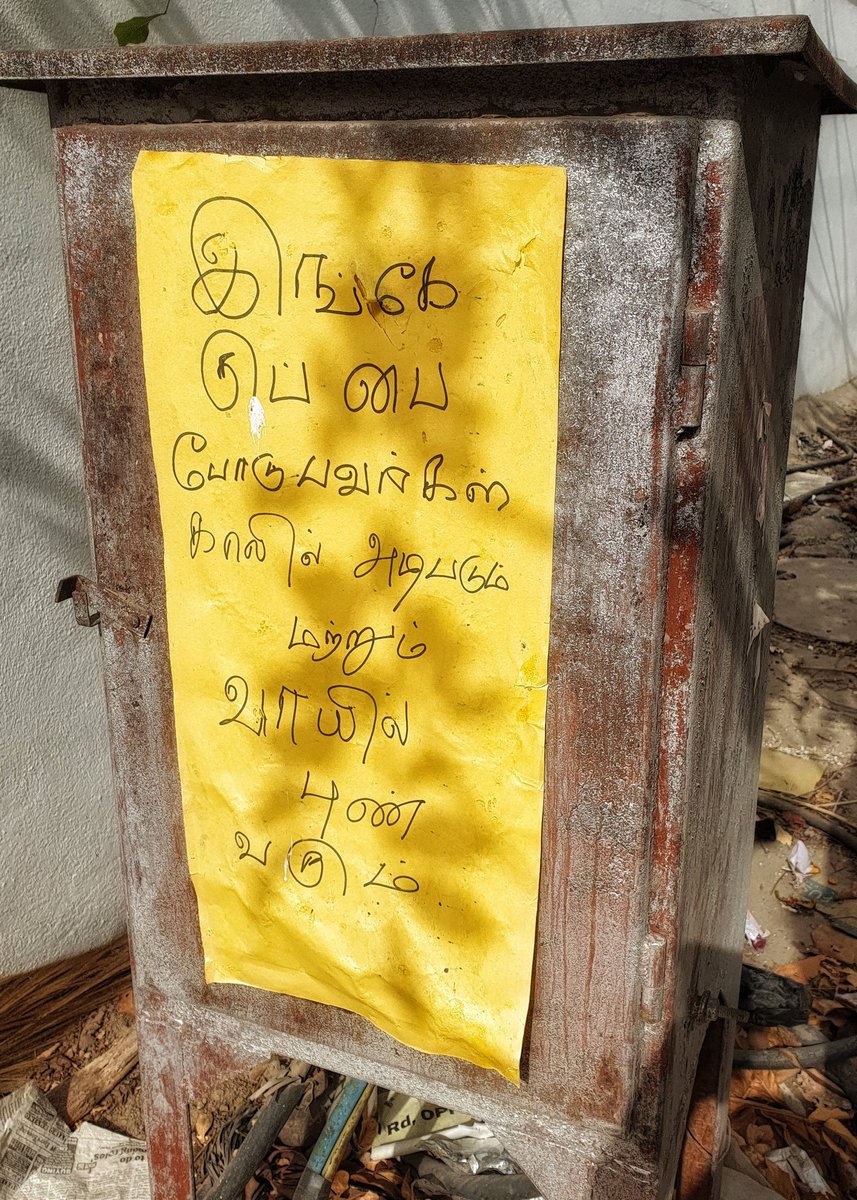 இங்கே
குப்பை
போடுபவர்கள்
காலில் அடிபடும்
மற்றும்
வாயில்
புண்
வரும்
Rd, OP